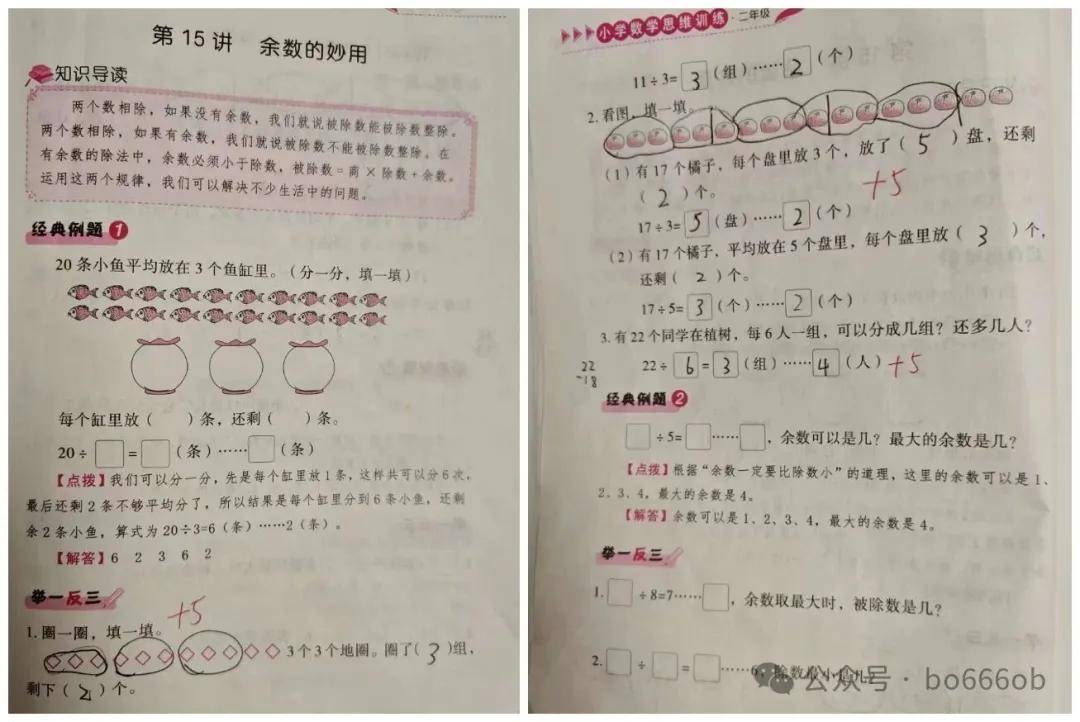 第 15 讲 余数的妙用
知识导读
两个数相除，如果没有余数，我们就说被除数能被除数整除。
两个数相除，如果有余数，我们就说被除数不能被除数整除。在
有余数的除法中，余数必须小于除数，被除数=商×除数+余数。
运用这两个规律，我们可以解决不少生活中的问题。
经典例题 1
20 条小鱼平均放在 3 个鱼缸里。（分一分，填一填）
每个缸里放（ ）条，还剩（ ）条。
20÷□=□（条）……□（条）
【点拨】我们可以分一分，先是每个缸里放1条，这样共可以分6次，
最后还剩2条不够平均分了，所以结果是每个缸里分到6条小鱼，还剩
余2条小鱼，算式为20÷3=6（条）……2（条）。
【解答】6 2 3 6 2
举一反三
+5
1. 圈一圈，填一填。
3个3个地圈。圈了（3）组，
剩下（2）个。
小学数学思维训练·二年级
11÷3=3（组）……2（个）
2. 看图，填一填。
（1）有17个橘子，每个盘里放3个，放了（5）盘，还剩
（2）个。
+5
17÷3=5（盘）……2（个）
（2）有17个橘子，平均放在5个盘里，每个盘里放（3）个，
还剩（2）个。
17÷5=3（个）……2（个）
3. 有22个同学在植树，每6人一组，可以分成几组？还多几人？
22÷6=3（组）……4（人）+5
22
-18
经典例题 2
□÷5=□……□，余数可以是几？最大的余数是几？
【点拨】根据“余数一定要比除数小”的道理，这里的余数可以是1、
2、3、4，最大的余数是4。
【解答】余数可以是1、2、3、4，最大的余数是4。
举一反三
1. □÷8=7……□，余数取最大时，被除数是几？
2. □÷□=□……6，除数最小是几？
公众号·bo666ob